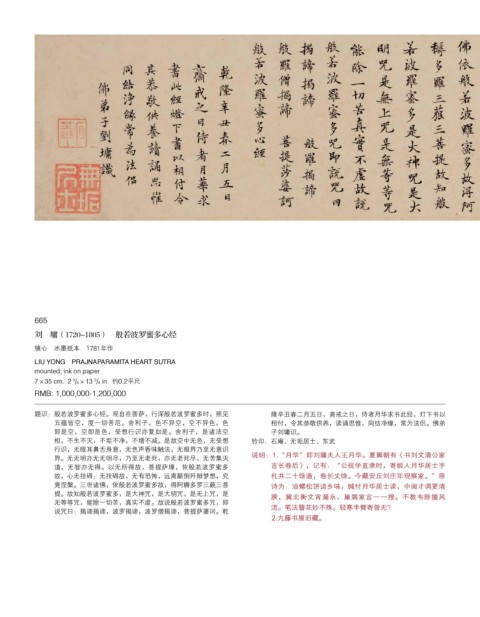 佛依般若波羅蜜多故得阿
耨多羅三藐三菩提故知般
若波羅蜜多是大神咒是大
明咒是無上咒是無等等咒
能除一切苦真實不虛故說
般若波羅蜜多咒即說咒曰
揭諦揭諦 般羅揭諦
般羅僧揭諦 菩提莎婆訶
般若波羅蜜多心經
乾隆辛丑春二月五日
齋戒之日侍者月華求
書此經燈下書以相付令
其恭敬供養讀誦思惟
同結淨緣常為法侶
佛弟子劉墉識
665
刘 墉（1720–1805） 般若波罗蜜多心经
镜心 水墨纸本 1781年作
LIU YONG PRAJNAPARAMITA HEART SUTRA
mounted; ink on paper
7 × 35 cm. 2 3/4 × 13 3/4 in. 约0.2平尺
RMB: 1,000,000-1,200,000
题识：般若波罗蜜多心经。观自在菩萨，行深般若波罗蜜多时，照见
五蕴皆空，度一切苦厄。舍利子，色不异空，空不异色，色
即是空，空即是色，受想行识亦复如是。舍利子，是诸法空
相，不生不灭，不垢不净，不增不减。是故空中无色，无受想
行识，无眼耳鼻舌身意，无色声香味触法，无眼界乃至无意识
界。无无明亦无无明尽，乃至无老死，亦无老死尽。无苦集灭
道，无智亦无得。以无所得故，菩提萨埵，依般若波罗蜜多
故，心无挂碍；无挂碍故，无有恐怖，远离颠倒梦想，究
竟涅槃。三世诸佛，依般若波罗蜜多故，得阿耨多罗三藐三菩
提。故知般若波罗蜜多，是大神咒，是大明咒，是无上咒，是
无等等咒，能除一切苦，真实不虚。故说般若波罗蜜多咒，即
说咒曰：揭谛揭谛，波罗揭谛，波罗僧揭谛，菩提萨婆诃。乾
隆辛丑春二月五日，斋戒之日，侍者月华求书此经，灯下书以
相付，令其恭敬供养，读诵思惟，同结净缘，常为法侣。佛弟
子刘墉识。
钤印：石庵、无垢居士、东武
说明：1.“月华”即刘墉夫人王月华。夏翼朝有《书刘文清公家
言长卷后》，记有：“公视学直隶时，寄姬人月华居士手
札共二十馀通，卷长丈馀。今藏安丘刘庄年观察家。”原